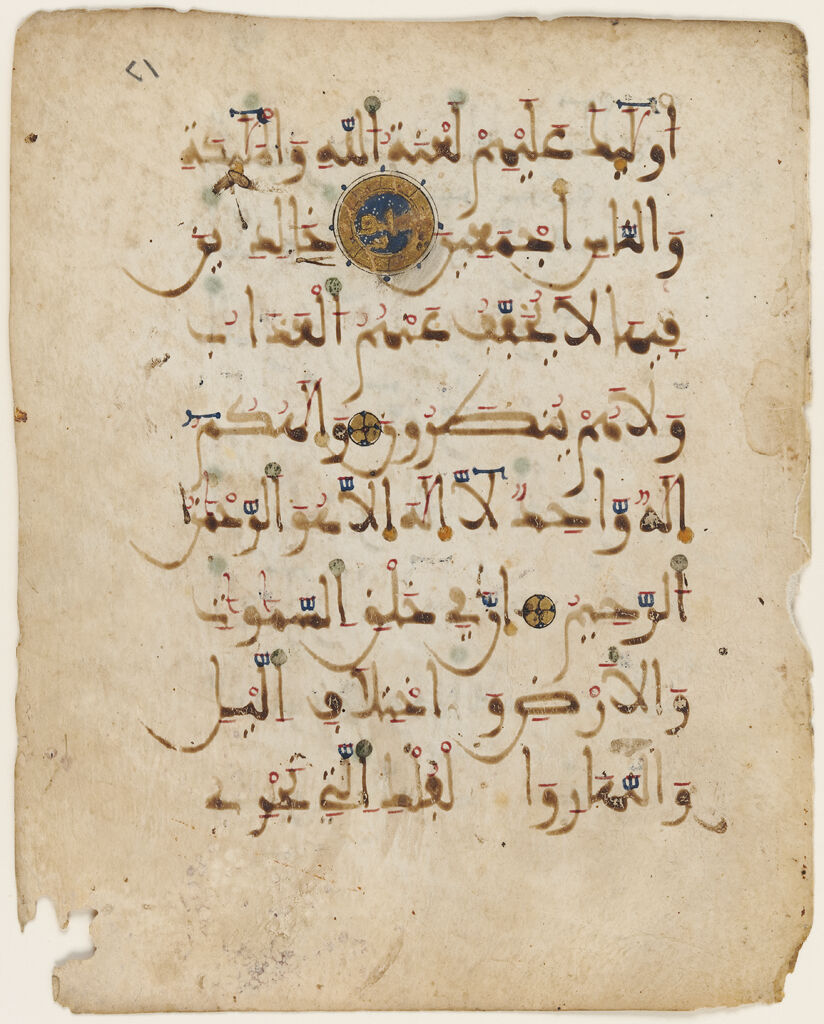 أُوْلَٰٓئِكَ عَلَيْهِمْ لَعْنَةُ اللَّهِ وَالْمَلَٰٓئِكَةِ
وَالنَّاسِ أَجْمَعِينَ خَالِدِينَ
فِيهَا لَا يُخَفَّفُ عَنْهُمُ الْعَذَابُ
وَلَا هُمْ يُنظَرُونَ وَإِلَٰهُكُمُ
إِلَٰهٌ وَاحِدٌ لَّآ إِلَٰهَ إِلَّا هُوَ الرَّحْمَٰنُ
الرَّحِيمُ إِنَّ فِي خَلْقِ السَّمَٰوَٰتِ
وَالْأَرْضِ وَاخْتِلَافِ الَّيْلِ
وَالنَّهَارِ وَالْفُلْكِ الَّتِي تَجْرِي